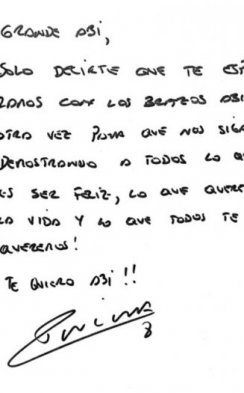 GRANDE ABI,
SOLO DECIRTE QUE TE ES
RAMOS CON LOS BRAZOS ABI
OTRA VEZ PARA QUE NOS SIGA
DEMOSTRANDO A TODOS LO QU
ES SER FELIZ, LO QUE QUERE
LA VIDA Y LO QUE TODOS TE
QUEREMOS!
TE QUIERO ABI !!
8